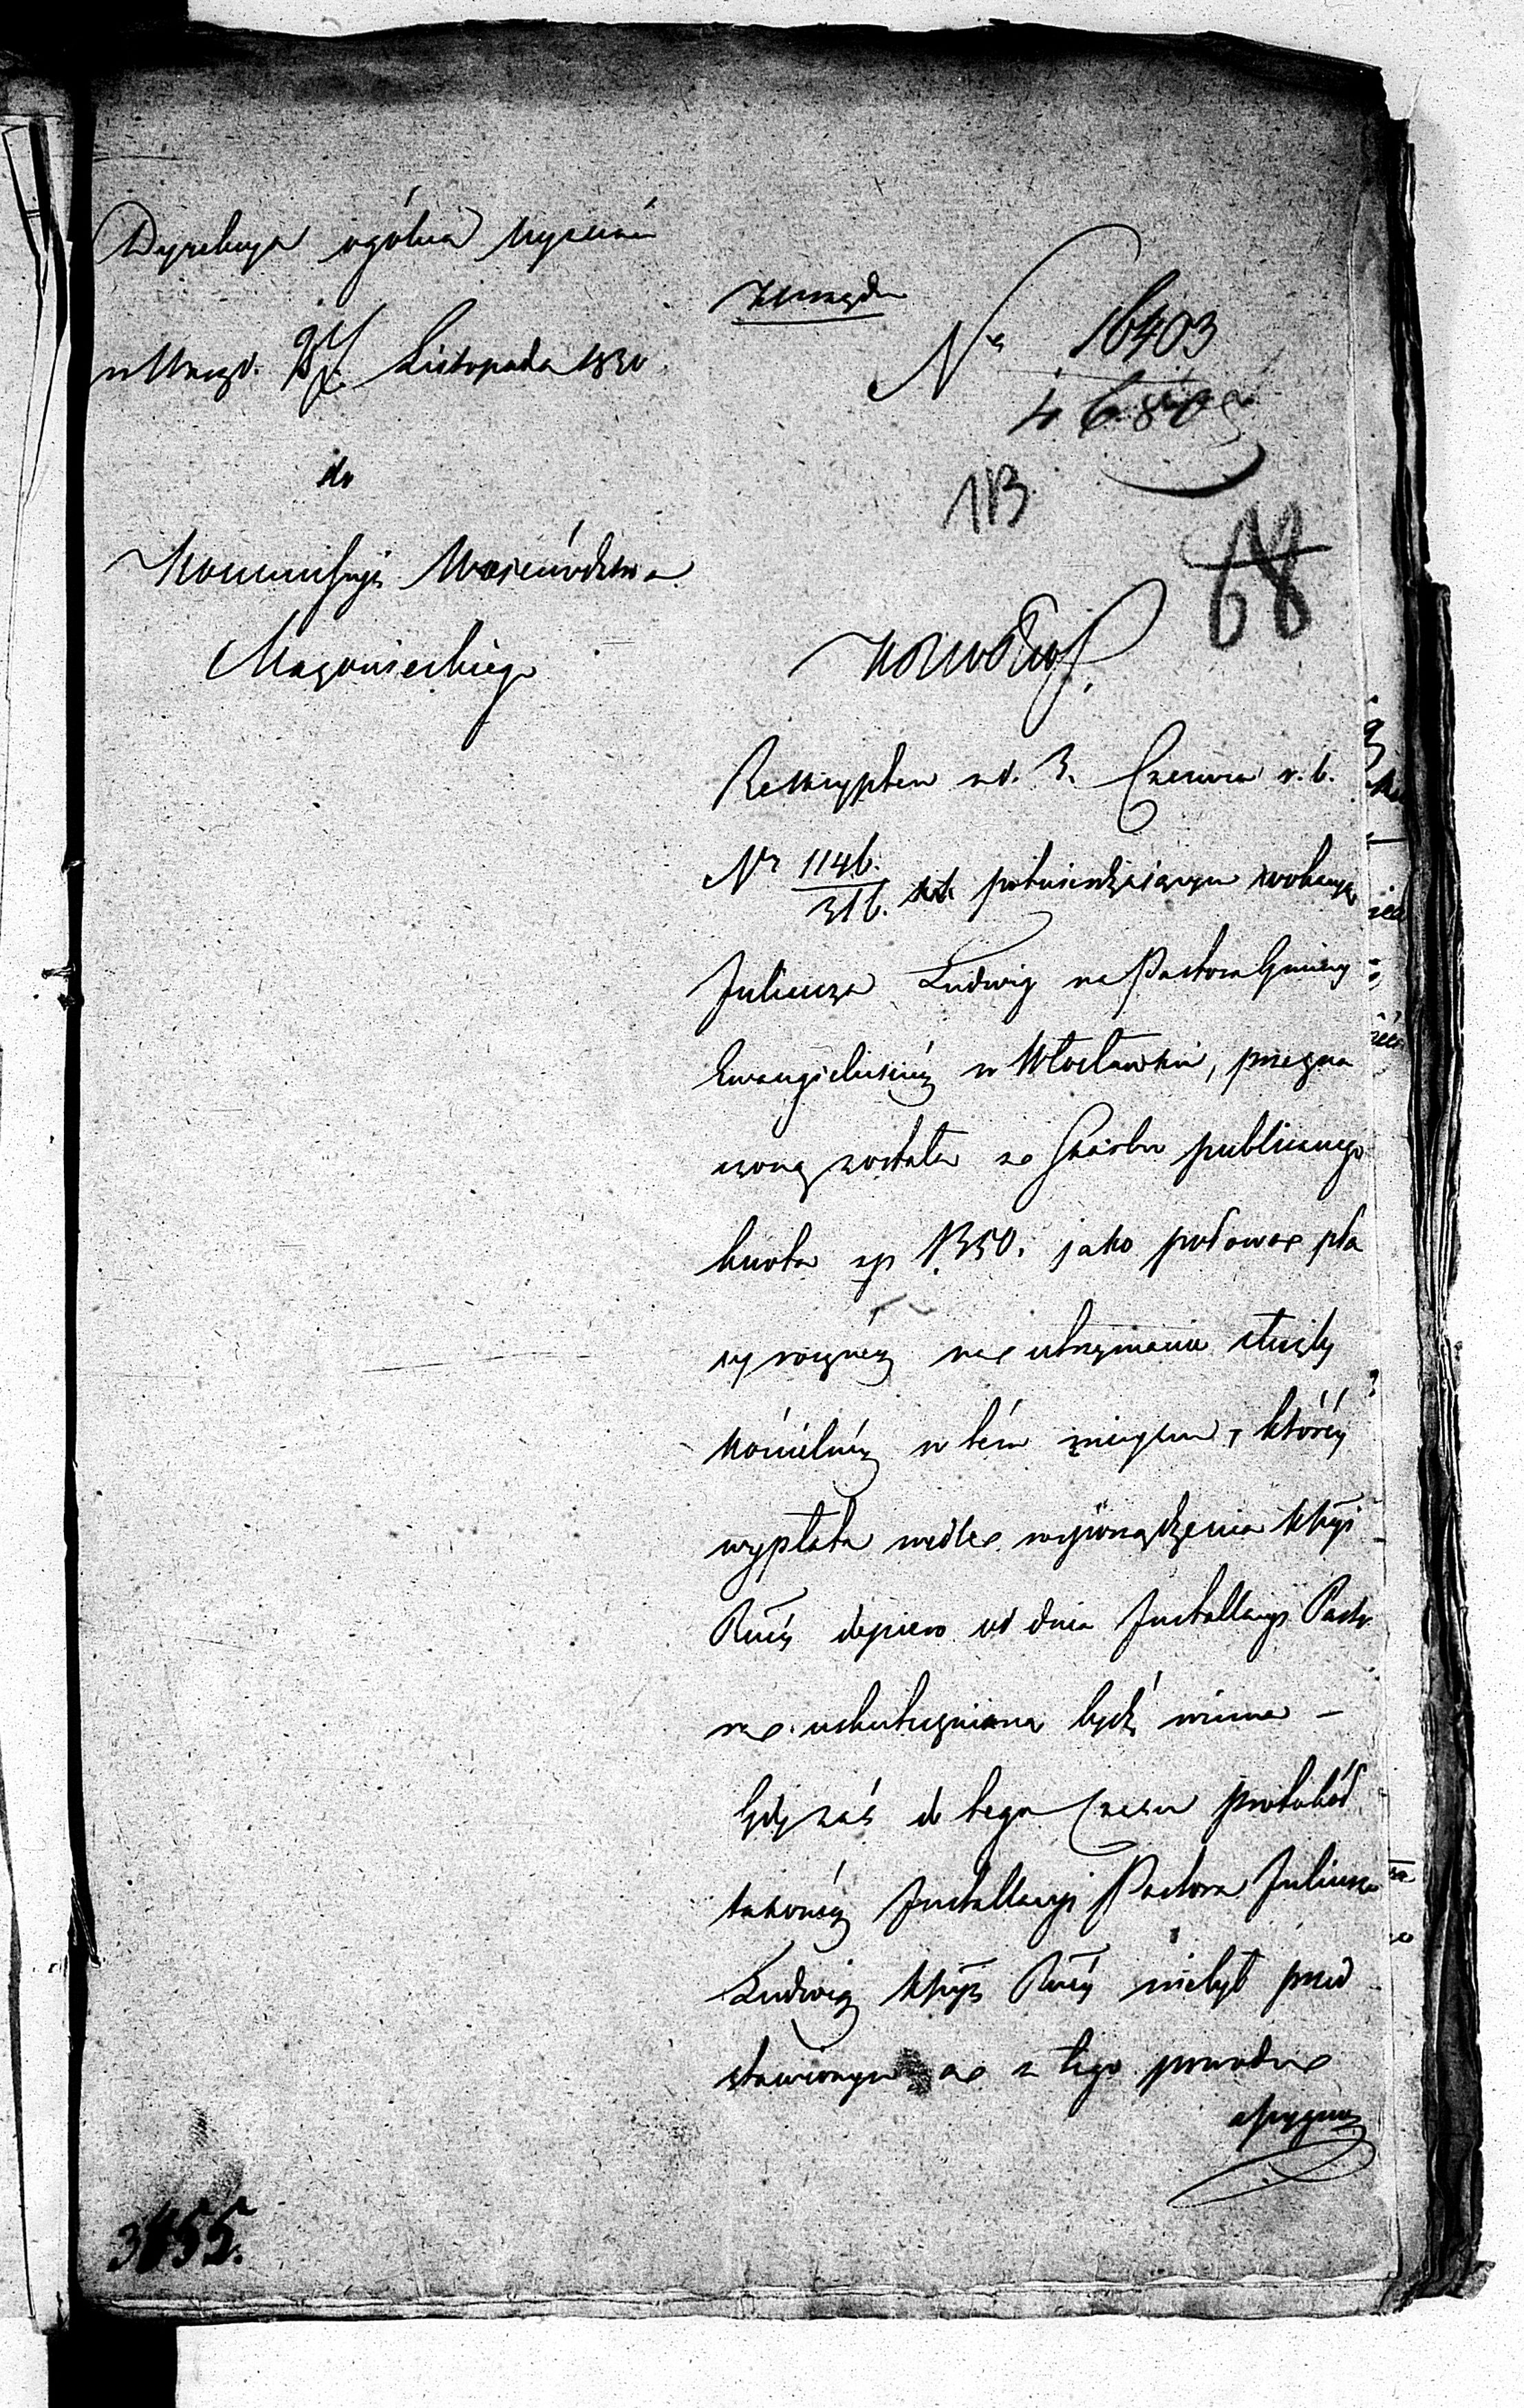 Dyrekcya ogólna Wyznań
w Warsz. d. Listopada 1830
do
Kommissyi Województwa
Mazowieckiego
z Urzędu
Nr 16403
13
68
Reskryptem z d. 3. Czerwca r. b.
Nr 1146./316. potwierdzającym wokacyą
Juliusza Ludwig na Pastora Gminy
Ewangielickiéy w Włocławku, przezna
czoną została ze Skarbu publicznego
kwota zp 1350. jako połowa pła
cy roczney na utrzymanie służby
kościelnéy w tém mieyscu, któréy
wypłata wedle rozporządzenia Kssyi
Rząéy dopiero od dnia Installacyi Pasto
ra uskutecznioną bydź winna –
Gdy zaś do tego czasu protokół
takowéy Installacyi Pastora Juliusza
Ludwig Kssyi Rząéy niebył przed
stawionym, a z tego powodu
assygnacy
3455.